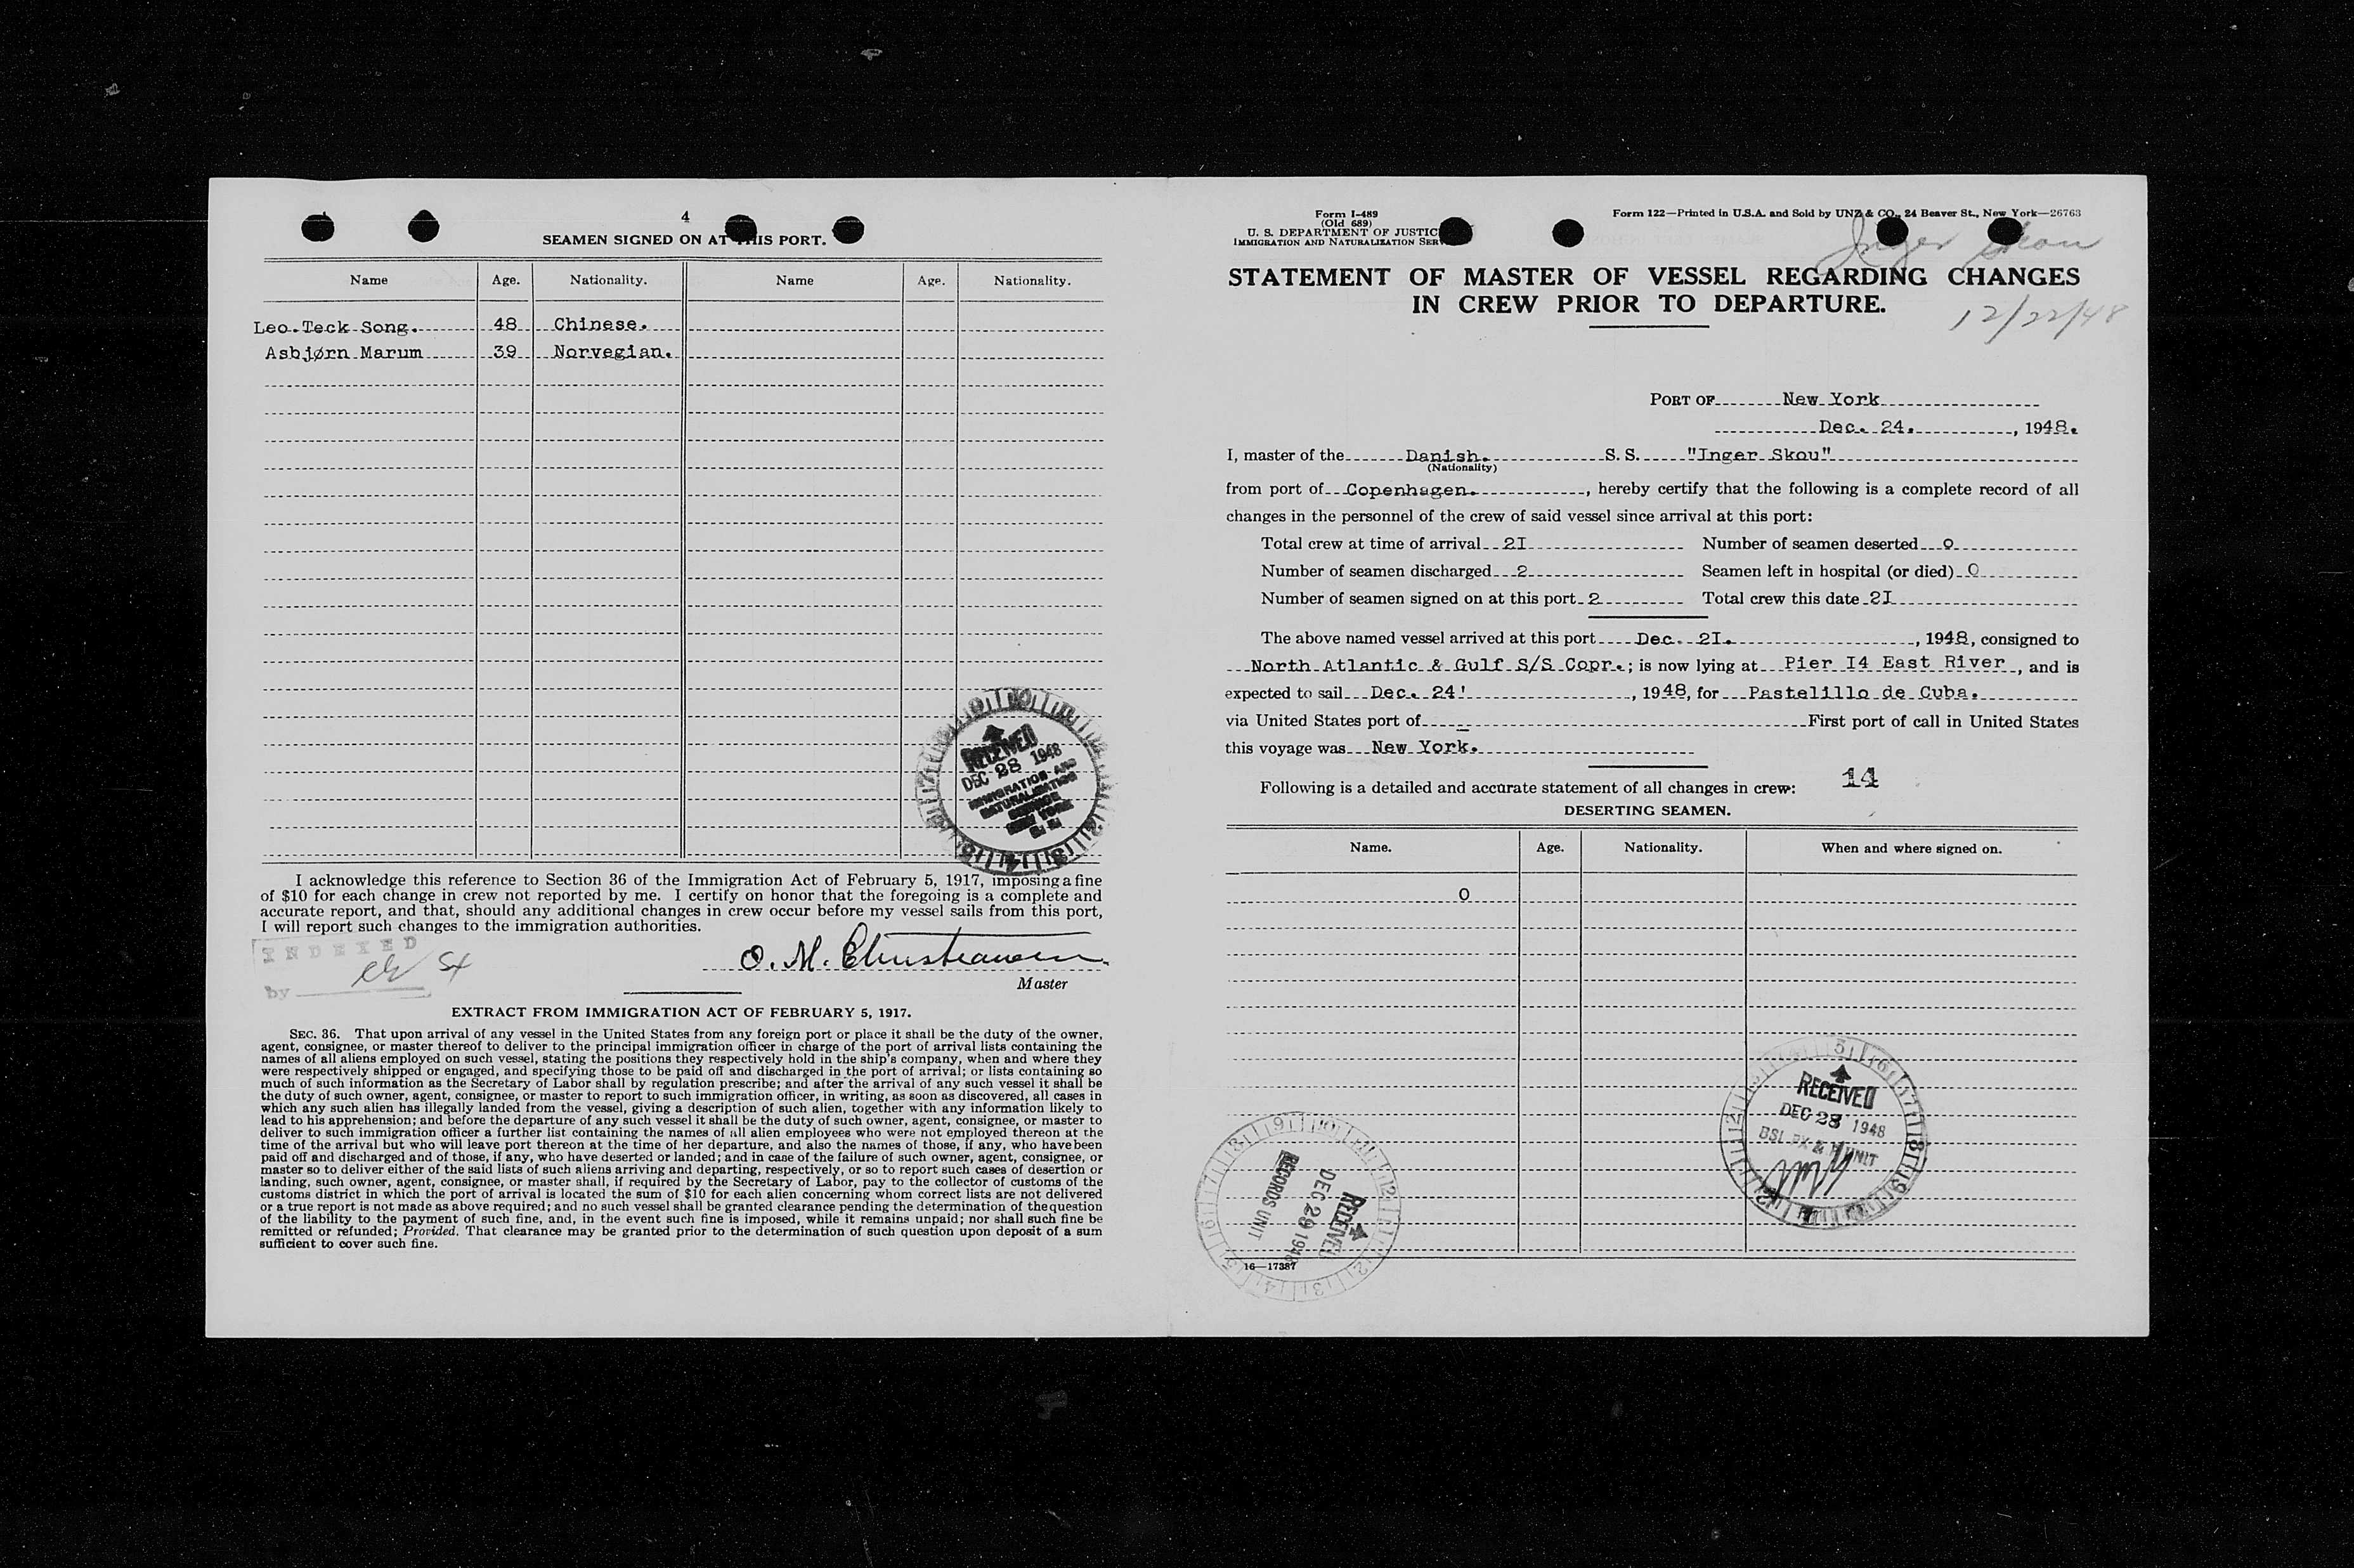 4
SEAMEN SIGNED ON AT THIS PORT.
Name Age. Nationality. Name Age. Nationality.
Leo Teck Song. 48 Chinese.
Asbjørn Marum 39 Norvegian.
RECEIVED
DEC 28 1948
IMMIGRATION AND
NATURALIZATION
SERVICE
NEW YORK
I acknowledge this reference to Section 36 of the Immigration Act of February 5, 1917, imposing a fine
of $10 for each change in crew not reported by me. I certify on honor that the foregoing is a complete and
accurate report, and that, should any additional changes in crew occur before my vessel sails from this port,
I will report such changes to the immigration authorities.
INDEXED
by
O. M. Christiansen
Master
EXTRACT FROM IMMIGRATION ACT OF FEBRUARY 5, 1917.
SEC. 36. That upon arrival of any vessel in the United States from any foreign port or place it shall be the duty of the owner,
agent, consignee, or master thereof to deliver to the principal immigration officer in charge of the port of arrival lists containing the
names of all aliens employed on such vessel, stating the positions they respectively hold in the ship's company, when and where they
were respectively shipped or engaged, and specifying those to be paid off and discharged in the port of arrival; or lists containing so
much of such information as the Secretary of Labor shall by regulation prescribe; and after the arrival of any such vessel it shall be
the duty of such owner, agent, consignee, or master to report to such immigration officer, in writing, as soon as discovered, all cases in
which any such alien has illegally landed from the vessel, giving a description of such alien, together with any information likely to
lead to his apprehension; and before the departure of any such vessel it shall be the duty of such owner, agent, consignee, or master to
deliver to such immigration officer a further list containing the names of all alien employees who were not employed thereon at the
time of the arrival but who will leave port thereon at the time of her departure, and also the names of those, if any, who have been
paid off and discharged and of those, if any, who have deserted or landed; and in case of the failure of such owner, agent, consignee, or
master so to deliver either of the said lists of such aliens arriving and departing, respectively, or so to report such cases of desertion or
landing, such owner, agent, consignee, or master shall, if required by the Secretary of Labor, pay to the collector of customs of the
customs district in which the port of arrival is located the sum of $10 for each alien concerning whom correct lists are not delivered
or a true report is not made as above required; and no such vessel shall be granted clearance pending the determination of the question
of the liability to the payment of such fine, and, in the event such fine is imposed, while it remains unpaid; nor shall such fine be
remitted or refunded; Provided. That clearance may be granted prior to the determination of such question upon deposit of a sum
sufficient to cover such fine.
Form I-489
(Old 689)
U. S. DEPARTMENT OF JUSTIC
IMMIGRATION AND NATURALIZATION SER
Form 122—Printed in U.S.A. and Sold by UNZ & CO., 24 Beaver St., New York—26763
Inger Skou
STATEMENT OF MASTER OF VESSEL REGARDING CHANGES
IN CREW PRIOR TO DEPARTURE.
12/22/48
PORT OF New York
Dec. 24., 1948.
I, master of the Danish. S. S. "Inger Skou"
(Nationality)
from port of Copenhagen., hereby certify that the following is a complete record of all
changes in the personnel of the crew of said vessel since arrival at this port:
Total crew at time of arrival 2I Number of seamen deserted 0
Number of seamen discharged 2 Seamen left in hospital (or died) 0
Number of seamen signed on at this port 2 Total crew this date 2I
The above named vessel arrived at this port Dec. 2I., 1948, consigned to
North Atlantic & Gulf S/S Copr.; is now lying at Pier I4 East River, and is
expected to sail Dec. 24', 1948, for Pastelillo de Cuba.
via United States port of - First port of call in United States
this voyage was New York.
Following is a detailed and accurate statement of all changes in crew: 14
DESERTING SEAMEN.
Name. Age. Nationality. When and where signed on.
0
RECEIVED
DEC 28 1948
BSI EX & H UNIT
RECEIVED
DEC 29 1948
RECORDS UNIT
16—17387